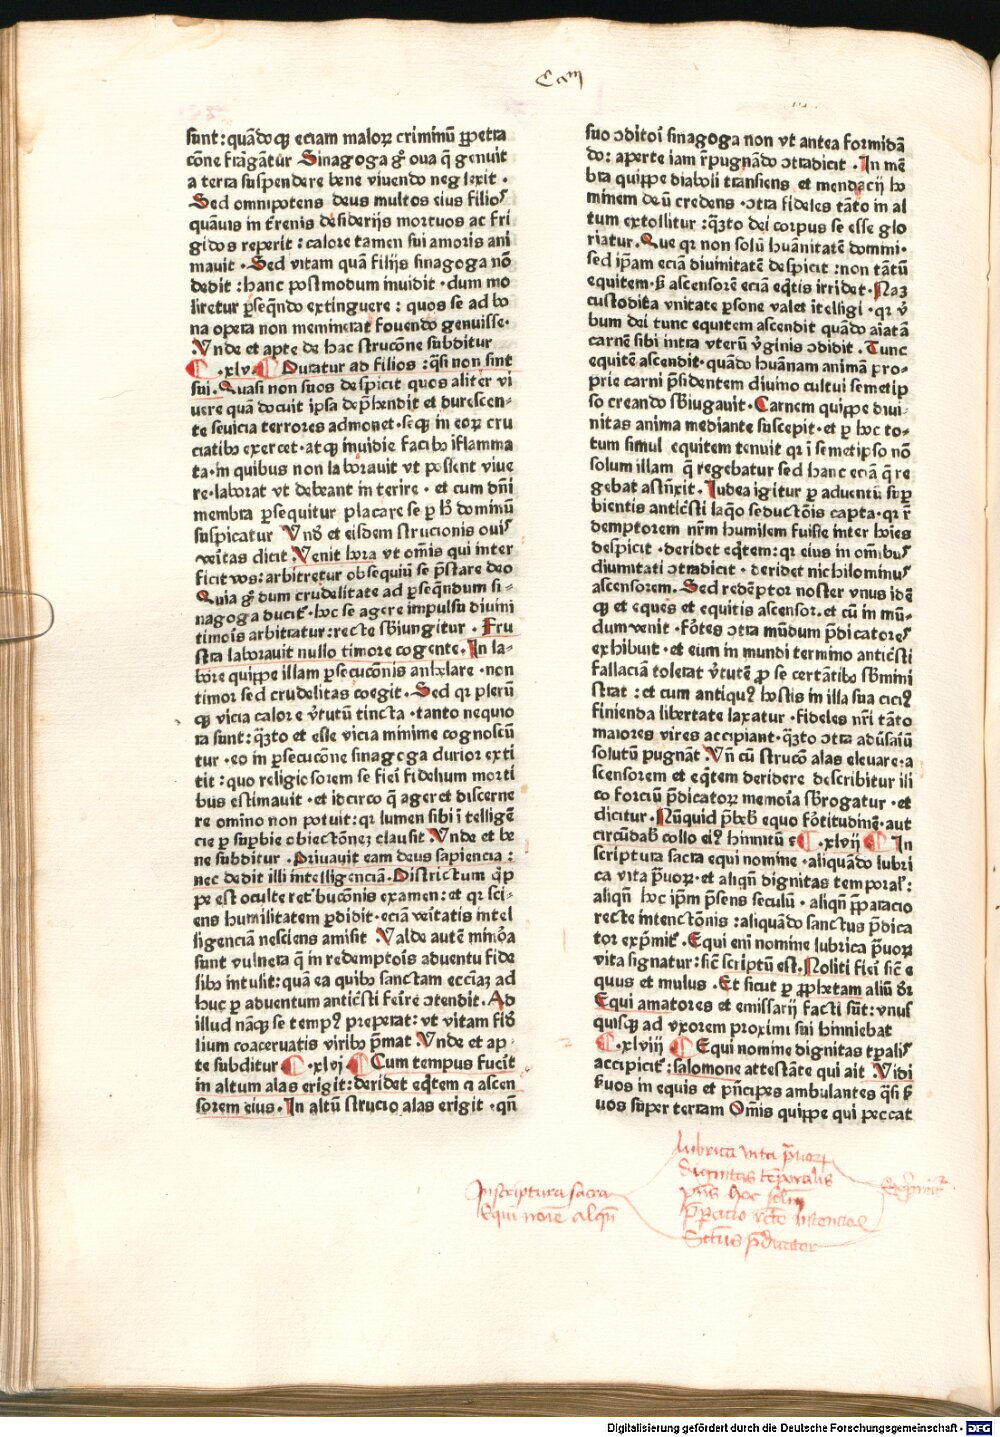 sunt:quādoqꝫ eciam maloꝝ criminū ꝑpetra
cōne frāgātur Sinagoga gͦ oua q̄ genuit
a terra suspendere bene viuendo neglexit .
Sed omnipotens deus multos eius filios
quāuis in t̄renis desiderijs mortuos ac fri
gidos reperit : calore tamen sui amoris ani
mauit . Sed vitam quā filijs sinagoga nō
dedit : hanc postmodum inuidit . dum mo
liretur ꝑseq̄ndo extinguere : quos se ad bo
na opera non meminerat fouendo genuisse.
Vnde et apte de hac strucōne subditur
¶ .xlv. ¶ Duratur ad filios : q̄si non sint
sui. Quasi non suos despicit quos aliter vi
uere quā docuit ipsa dep̄hendit et durescen-
te seuicia terrores admonet . seqꝫ in eoꝝ cru
ciatibꝰ exercet . atqꝫ inuidie facibꝰ īflamma
ta . in quibus non laborauit vt possent viue
re . laborat vt debeant in terire . et cum dn̄i
membra ꝑsequitur placare se ꝑ hͦ dominū
suspicatur Vnd̄ et eisdem strucionis ouis
veritas dicit Venit hora vt om̄is qui inter
ficit vos : arbitretur obsequiū se p̄stare deo
Quia gͦ dum crudelitate ad ꝑseq̄ndum si-
nagoga ducit᷑ . hoc se agere impulsu diuini
timoīs arbitratur : recte sb̄iungitur . Fru
stra laborauit nullo timore cogente. In la-
bore quippe illam ꝑsecucōnis anhelare . non
timor sed crudelitas coegit . Sed qꝛ plerū
qꝫ vicia calore v̄tutū tincta . tanto nequio
ra sunt : q̄ꝫto et esse vicia minime cognoscū
tur . eo in ꝑsecucōne sinagoga durior exti
tit : quo religiosorem se fieri fidelium morti
bus estimauit . et idcirco q̄ ageret discerne
re omīno non potuit : qꝛ lumen sibi ī telligē
cie ꝑ suꝑbie obiectōneꝫ clausit Vnde et be
ne subditur . Priuauit eam deus sapiencia :
nec dedit illi intelligenciā . Districtum q̄p
pe est oculte ret᷑ bucōnis examen : et qꝛ sci-
ens humilitatem ꝑdidit . eciā veritatis intel
ligenciā nesciens amisit Valde autē minora
sunt vulnera q̄ in redemptoīs aduentu fide
libꝰ intulit : quā ea quibꝰ sanctam ecciaꝫ ad
huc ꝑ aduentum antic̄sti feīre ↄtendit . Ad
illud nāqꝫ se tempꝰ preperat : vt vitam fid̄
lium coaceruatis viribꝰ p̄mat Vnde et ap-
te subditur ¶ .xlvi ¶ Cum tempus fuerit
in altum alas erigit : deridet eq̄tem ⁊ ascen
sorem eius . In altū strucio alas erigit . qn̄
suo ↄditori sinagoga non vt antea formidā
do : aperte iam rep̄ugnādo ↄtradicit . In mē
bra quippe diaboli transiens et mendacij ho
minem deū credens . ↄtra fideles tāto in al
tum extollitur : q̄ꝫto dei corpus se esse glo
riatur . Que qꝛ non solū huānitatē domini .
sed ip̄am eciā diuinitatē despicit : non tātū
equitem . sꝫ ascensorē eciā eq̄tis irridet . Naꝫ
custodita vnitate ꝑsone valet ītelligi . qꝛ v̄
bum dei tunc equitem ascendit quādo aīatā
carnē sibi intra vterū v̄ginis ↄdidit . Tunc
equitē ascendit . quādo huānam animā pro-
prie carni p̄sidentem diuino cultui semetip
so creando sb̄iugauit . Carnem quippe diui-
nitas anima mediante suscepit . et ꝑ hoc to-
tum simul equitem tenuit qꝛ ī semetipso nō
solum illam q̄ regebatur sed hanc eciā q̄ re
gebat astn̄xit . Iudea igitur ꝑ aduentū suꝑ
bientis antic̄sti laq̄o seductōnis capta . qꝛ r̄
demptorem nr̄m humilem fuisse inter hoīes
despicit . deridet eq̄tem : qꝛ eius in omībus
diuinitati ↄtradicit . deridet nichilominus
ascensorem . Sed redēptor noster vnus idē
qꝫ et eques et equitis ascensor . et cū in mū-
dum venit . fōtes ↄtra mūdum p̄dicatores
exhibuit . et eum in mundi termino antic̄sti
fallaciā tolerat v̄tutē ꝓ se certātibꝰ sb̄mini
strat : et cum antiquꝰ hostis in illa sua ciciꝰ
finienda libertate laxatur . fideles nr̄i tāto
maiores vires accipiant . q̄ꝫto ↄtra adūsariū
solutū pugnāt Vn̄ cū strucō alas eleuare . a
scensorem et eq̄tem deridere describitur ili
co forciū p̄dicatoꝝ memoīa sb̄rogatur . et
dicitur . Nūquid p̄beb̄ equo fōtitudinē . aut
circūdab̄ collo eiꝰ hinnitū ⁊c ¶ .xlvij ¶ In
scriptura sacra equi nomine . aliquādo lubri
ca vita p̄uoꝝ . et aliqn̄ dignitas temporal᷑ :
aliqn̄ hoc ip̄m p̄sens seculū . aliqn̄ p̄ꝑaracio
recte intenctōnis : aliquādo sanctus p̄dica
tor exp̄mit᷑ . Equi eni nomine lubrica p̄uoꝝ
vita signatur : sic̄ scriptū est . Noliti fieri sic̄ e
quus et mulus . Et sicut ꝑ ꝓphetam aliū dr̄
Equi amatores et emissarij facti sūt : vnus
quisqꝫ ad vxorem proximi sui hinniebat
¶ .xlviij ¶ Equi nomine dignitas tꝑalis
accipicit᷑ : salomone attestāte qui ait Vidi
ẜuos in equis et pn̄cipes ambulantes q̄si ẜ
uos super terram Om̄is quippe qui peccat
In scriptura sacra
Equi noīe aliqn̄
lubrica vita p̄uoꝝ
Dignitas tēporalis
p̄ns hoc sclm
p̄ꝑacio rcte intencīois
Sctūs p̄dicator
Exp̄mit᷑
Digitalisierung gefördert durch die Deutsche Forschungsgemeinschaft - DFG